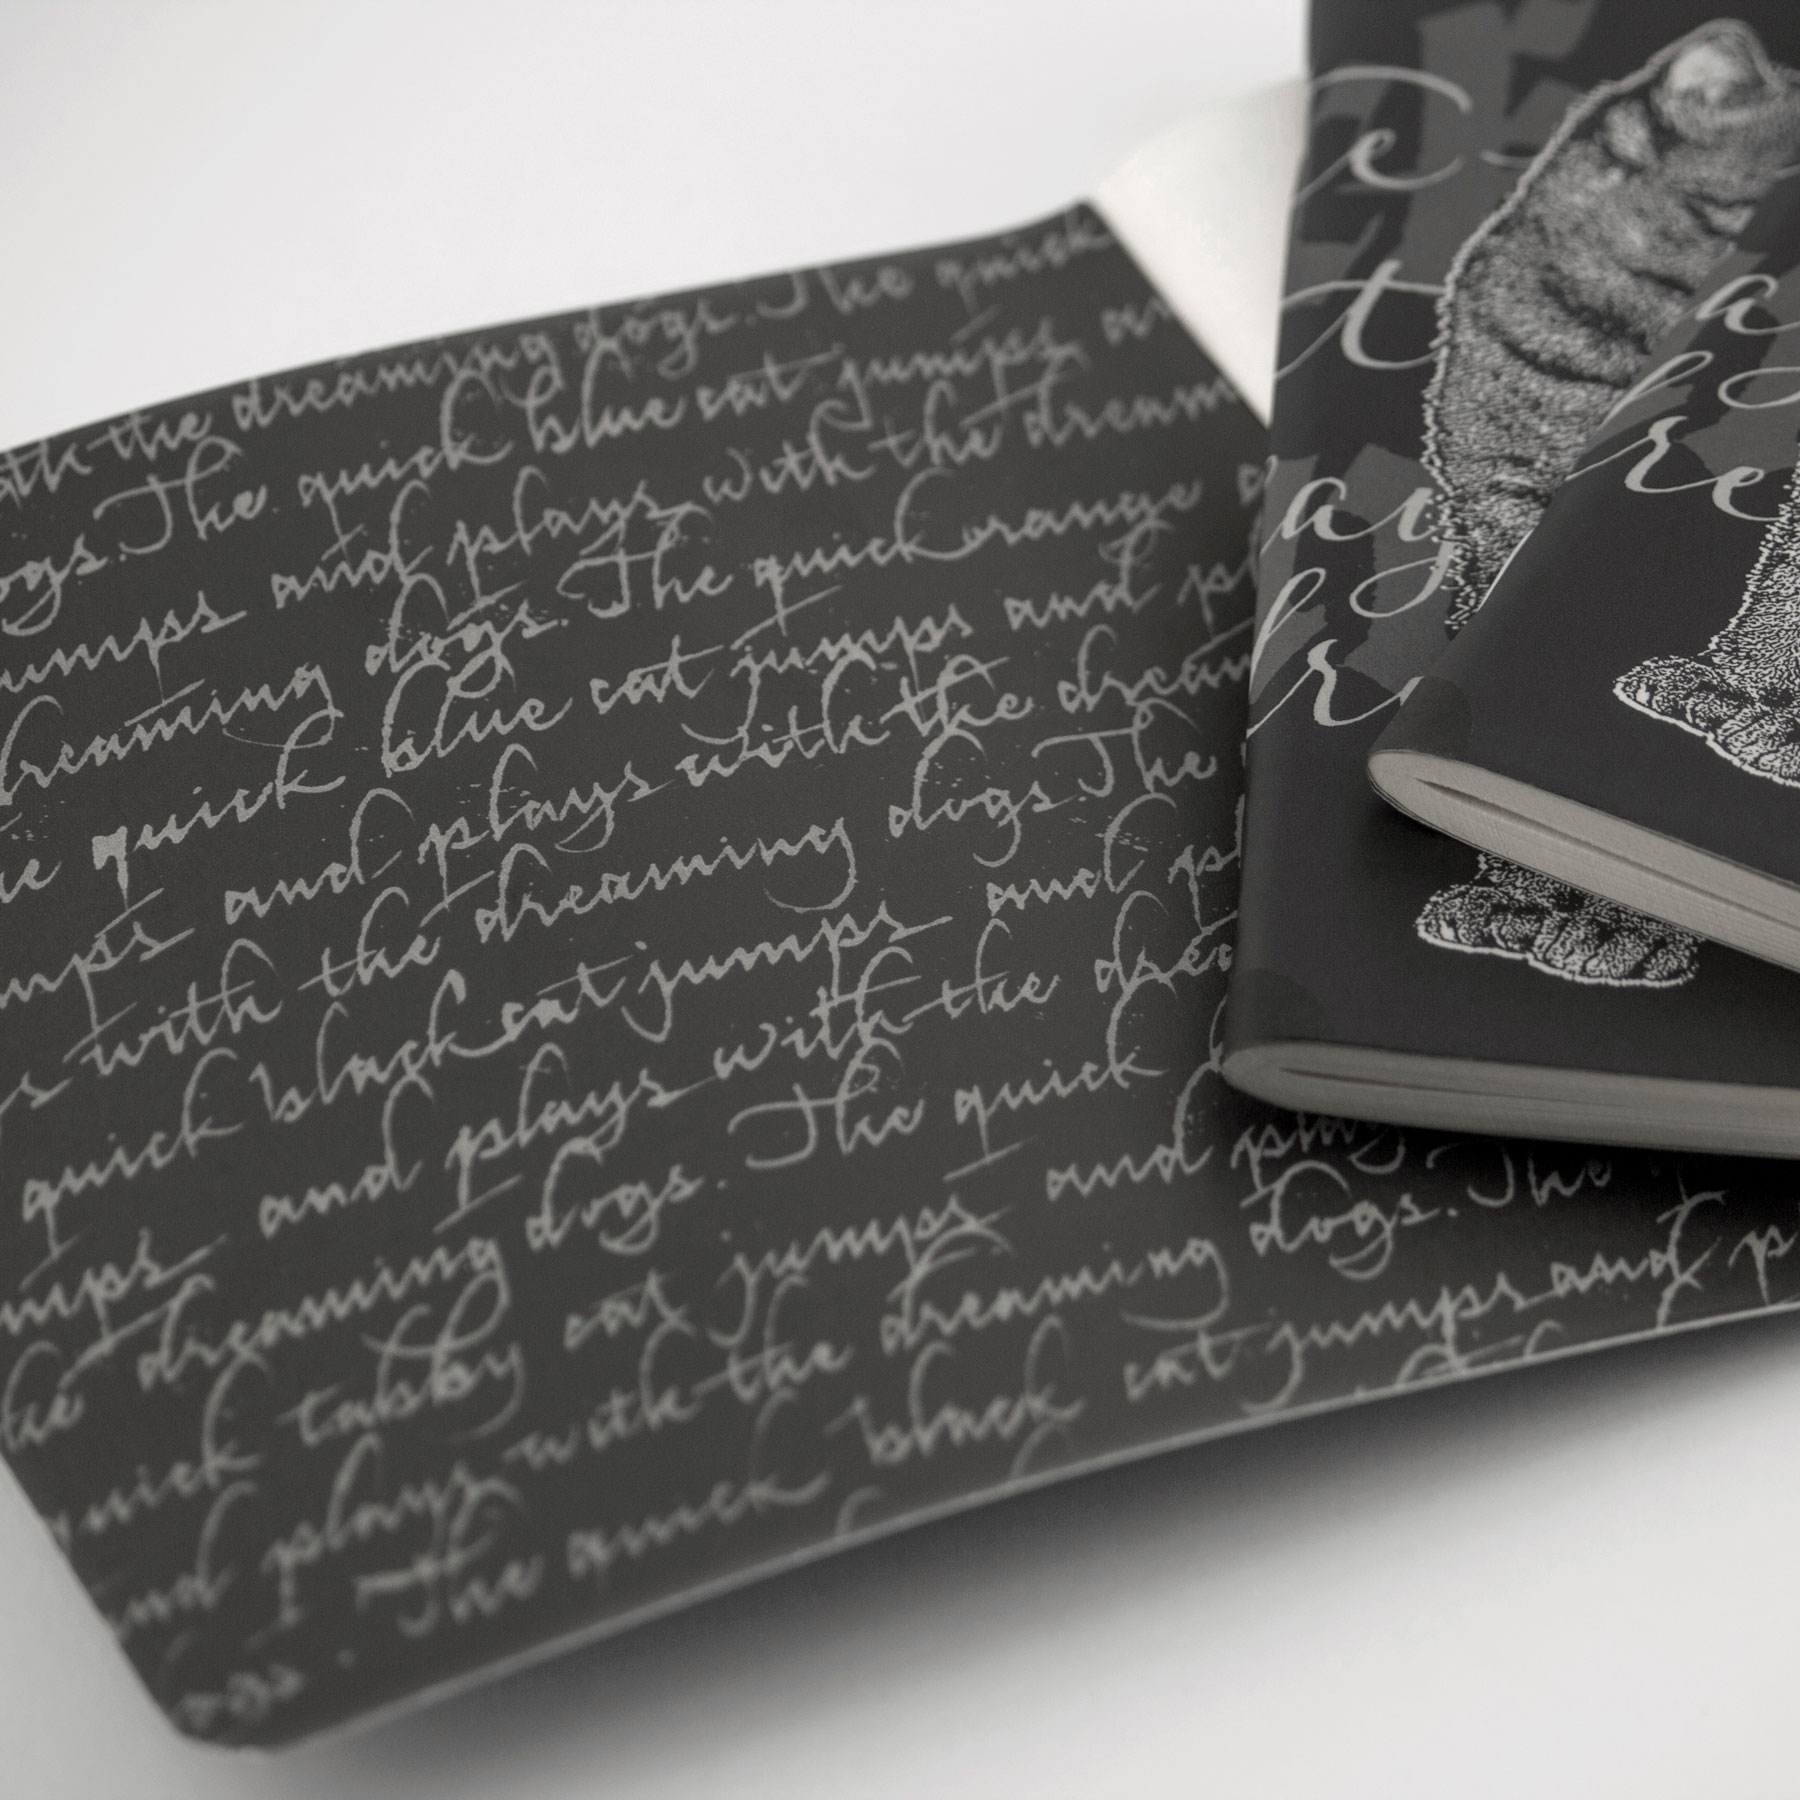 the dreaming dogs. The quick
The quick blue cat jumps
jumps and plays with the dream
dreaming dogs. The quick orange
quick blue cat jumps and pl
mps and plays with the dream
with the dreaming dogs. The
quick black cat jumps and p
mps and plays with the
the dreaming dogs. The quick and play
quick tabby cat jumps dogs. The
and plays with the dreaming cat jumps and p
The quick black
ogs.